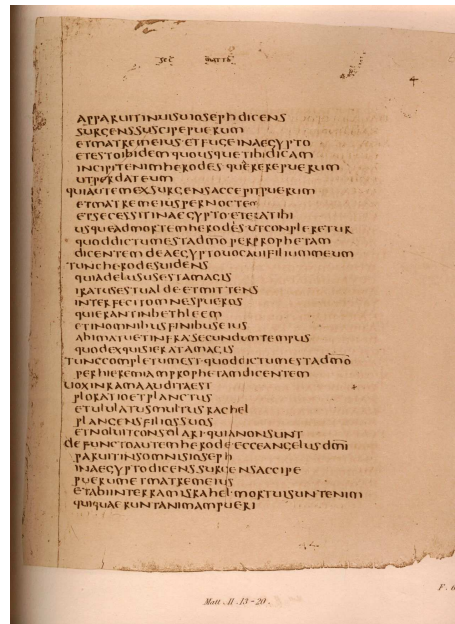 sec matth
APPARUITINUISUIOSEPHDICENS
SURGENSSUSCIPEPUERUM
ETMATREMEIUS·ETFUGEINAEGYPTO
ETESTOIBIDEMQUOUSQUETIBIDICAM
INCIPITENIMHERODESQUEREREPUERUM
UTPERDATEUM
QUIAUTEMEXSURGENSACCEPITPUERUM
ETMATREMEIUSPERNOCTEM
ETSECESSITINAEGYPTO·ETERATIBI
USQUEADMORTEMHERODES·UTCONPLERETUR
QUODDICTUMESTADMOPERPROPHETAM
DICENTEMDEAEGYPTOUOCAUIFILIUMMEUM
TUNCHERODESUIDENS
QUIADELUSUSESTAMAGIS
IRATUSESTUALDEETMITTENS
INTERFECITOMNESPUEROS
QUIERANTINBETHLEEM
ETINOMNIBUSFINIBUSEIUS
ABIMATUETINFRA·SECUNDUMTEMPUS
QUODEXQUISIERATAMAGIS
TUNCCOMPLETUMEST·QUODDICTUMESTADMO
PERHIEREMIAMPROPHETAMDICENTEM
UOXINRAMAAUDITAEST
PLORATIOETPLANCTUS
ETULULATUSMULTUSRACHEL
PLANGENSFILIOSSUOS
ETNOLUITCONSOLARI·QUIANONSUNT
DEFUNCTOAUTEMHERODE·ECCEANGELUSDMI
PARUITINSOMNISIOSEPH
INAEGYPTODICENS·SURGENSACCIPE
PUERUMETMATREMEIUS
ETABIINTERRAMISRAHEL·MORTUISUNTENIM
QUIQUAERUNTANIMAMPUERI
Matt. II. 13-20.